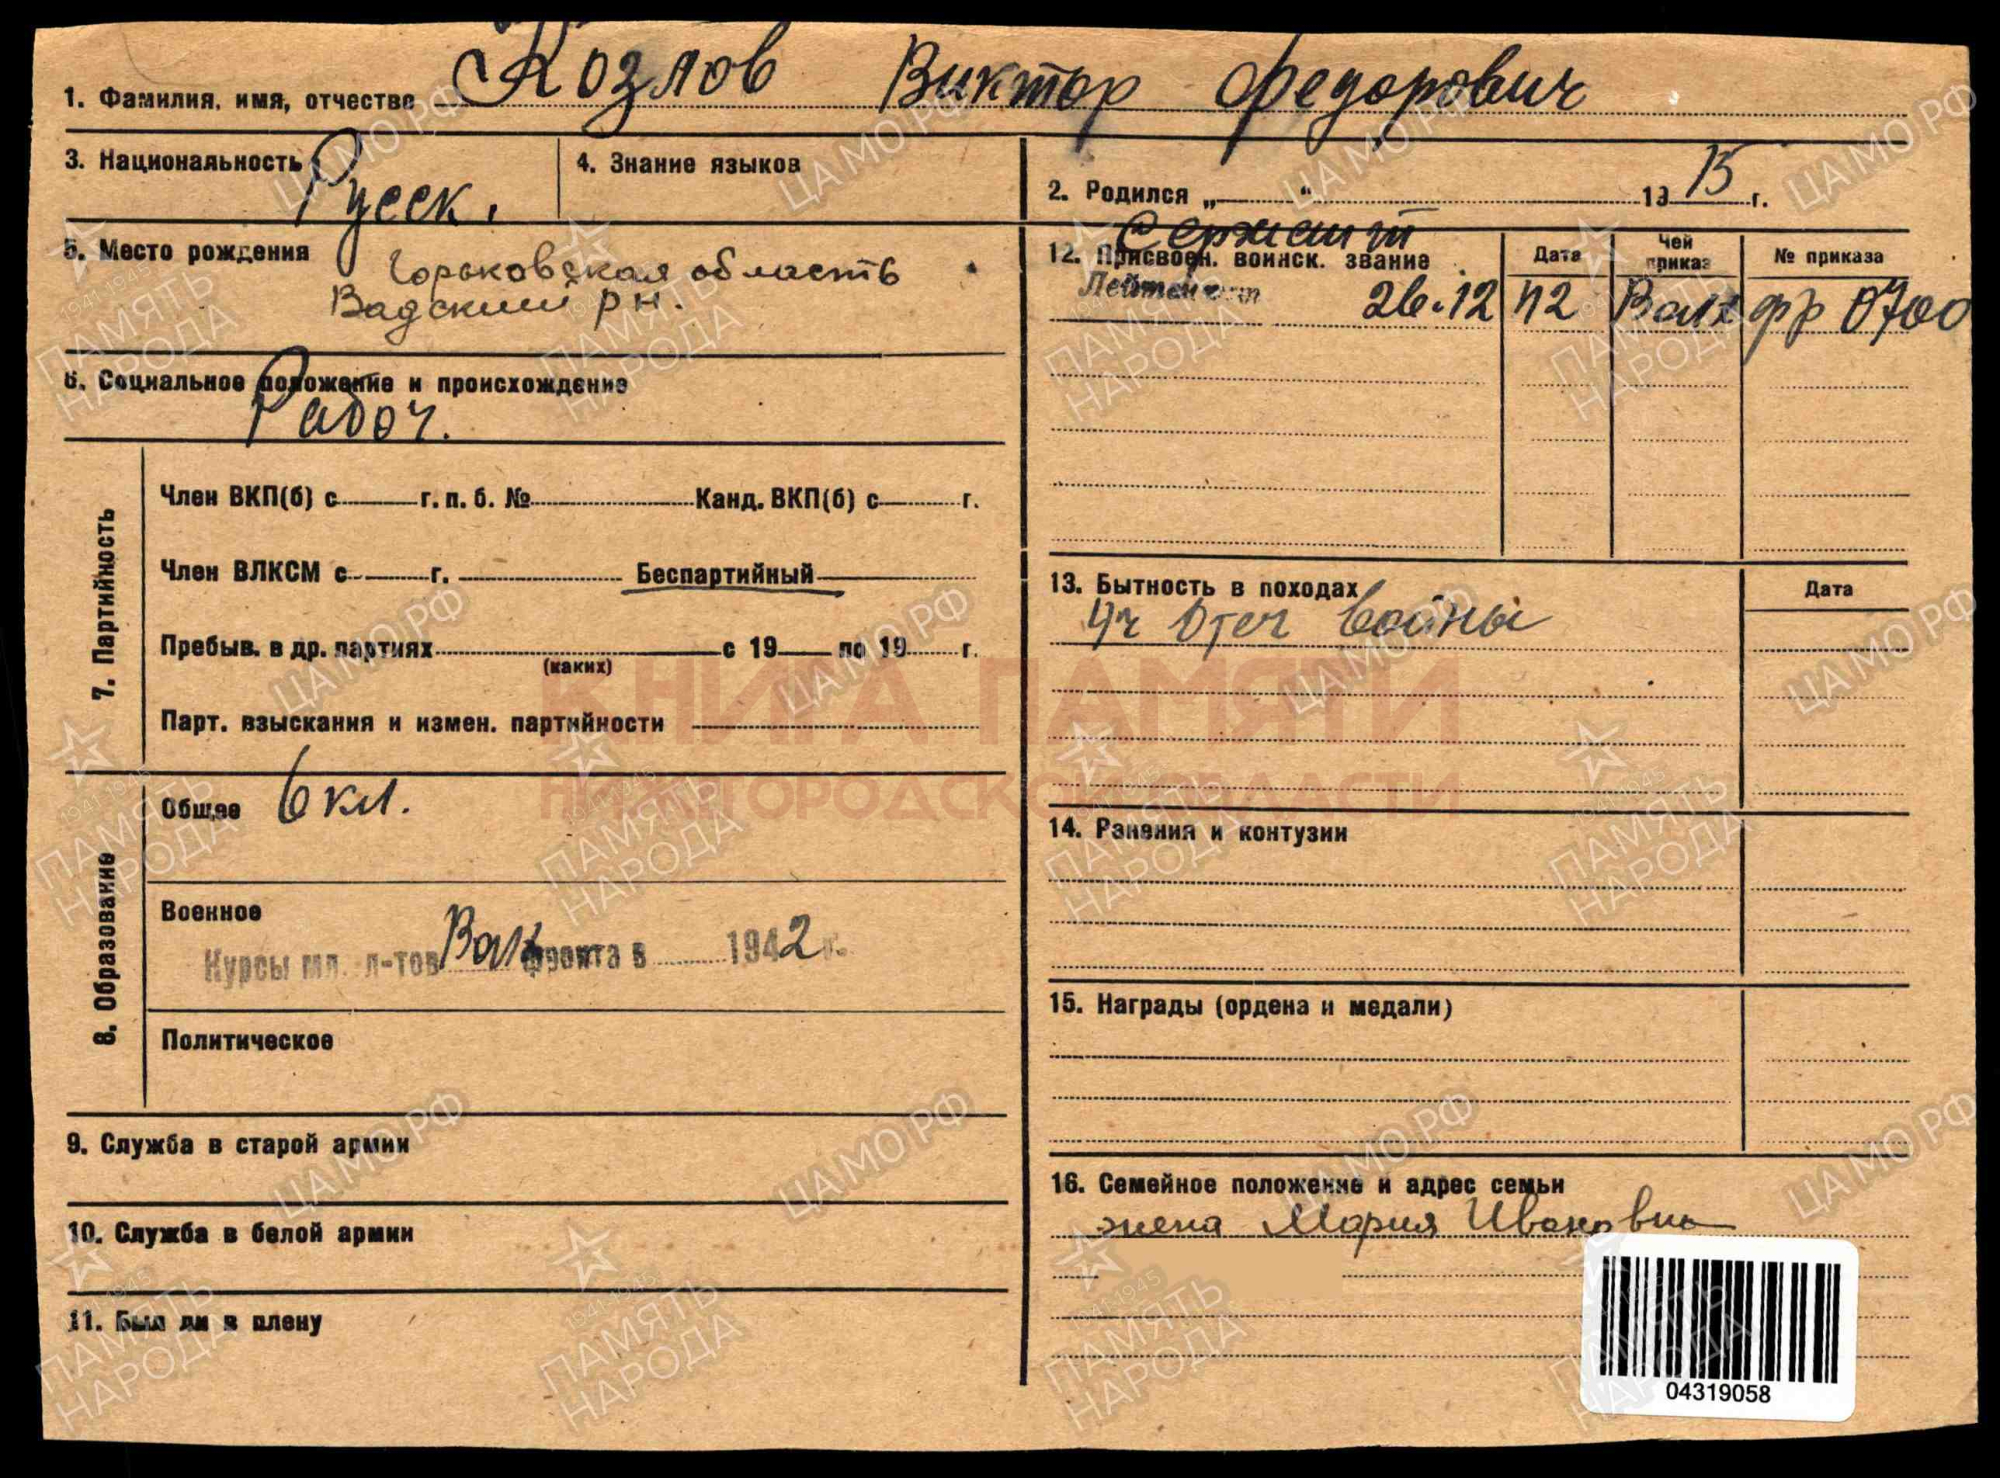 1. Фамилия, имя, отчество Козлов Виктор Федорович
3. Национальность Русск.
4. Знание языков
2. Родился „ “ 1915 г.
5. Место рождения Горьковская область
Вадский р н.
6. Социальное положение и происхождение
Рабоч.
7. Партийность
Член ВКП(б) с г. п. б. № Канд. ВКП(б) с г.
Член ВЛКСМ с г. Беспартийный
Пребыв. в др. партиях с 19 по 19 г.
(каких)
Парт. взыскания и измен. партийности
8. Образование
Общее 6 кл.
Военное
Курсы мл. л-тов Волх фронта в 1942 г.
Политическое
9. Служба в старой армии
10. Служба в белой армии
11. Был ли в плену
Сержант
12. Присвоен. воинск. звание Дата Чей приказ № приказа
Лейтенант 26.12 42 Волх фр 0700
13. Бытность в походах Дата
Уч Отеч войны
14. Ранения и контузии
15. Награды (ордена и медали)
16. Семейное положение и адрес семьи
жена Мария Ивановна
04319058
КНИГА ПАМЯТИ
НИЖЕГОРОДСКОЙ ОБЛАСТИ
ЦАМО РФ
1941-1945
ПАМЯТЬ
НАРОДА